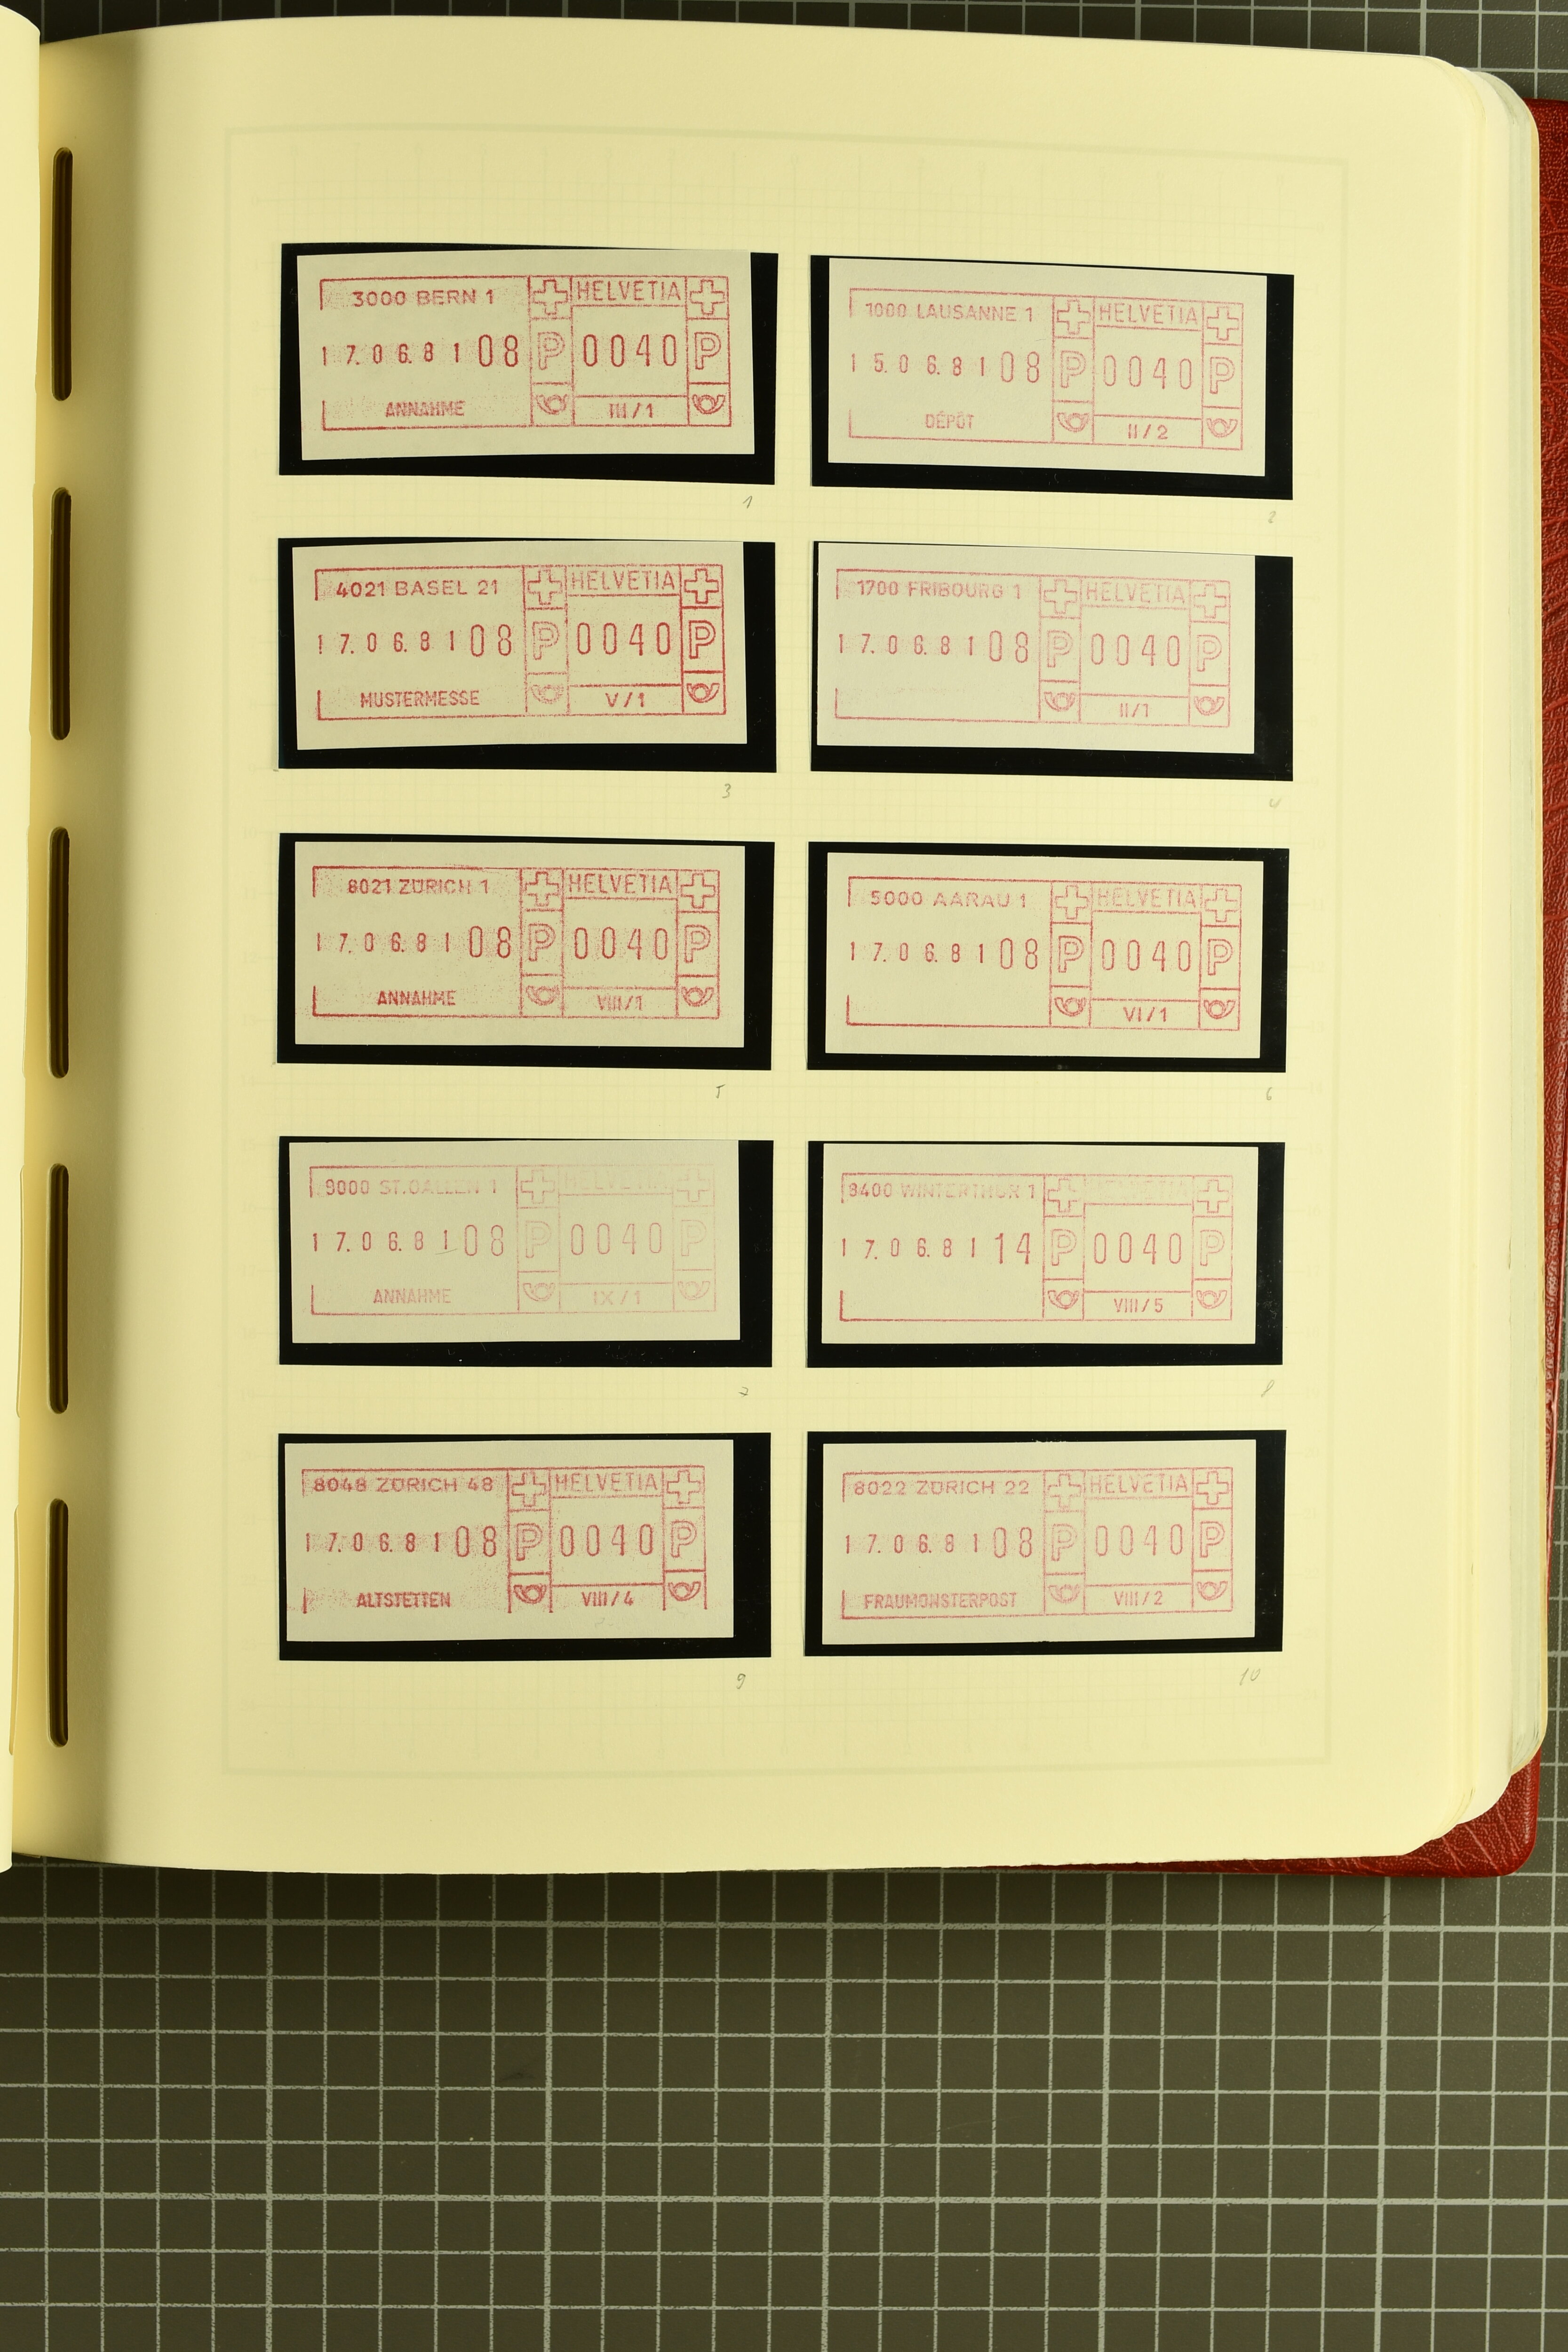 3000 BERN 1 HELVETIA
17.06.81 08 P 0040 P
ANNAHME III/1
1
1000 LAUSANNE 1 HELVETIA
15.06.81 08 P 0040 P
DÉPÔT II/2
2
4021 BASEL 21 HELVETIA
17.06.81 08 P 0040 P
MUSTERMESSE V/1
3
1700 FRIBOURG 1 HELVETIA
17.06.81 08 P 0040 P
II/1
4
8021 ZÜRICH 1 HELVETIA
17.06.81 08 P 0040 P
ANNAHME VIII/1
5
5000 AARAU 1 HELVETIA
17.06.81 08 P 0040 P
VI/1
6
9000 ST.GALLEN 1 HELVETIA
17.06.81 08 P 0040 P
ANNAHME IX/1
7
8400 WINTERTHUR 1 HELVETIA
17.06.81 14 P 0040 P
VIII/5
8
8048 ZÜRICH 48 HELVETIA
17.06.81 08 P 0040 P
ALTSTETTEN VIII/4
9
8022 ZÜRICH 22 HELVETIA
17.06.81 08 P 0040 P
FRAUMÜNSTERPOST VIII/2
10